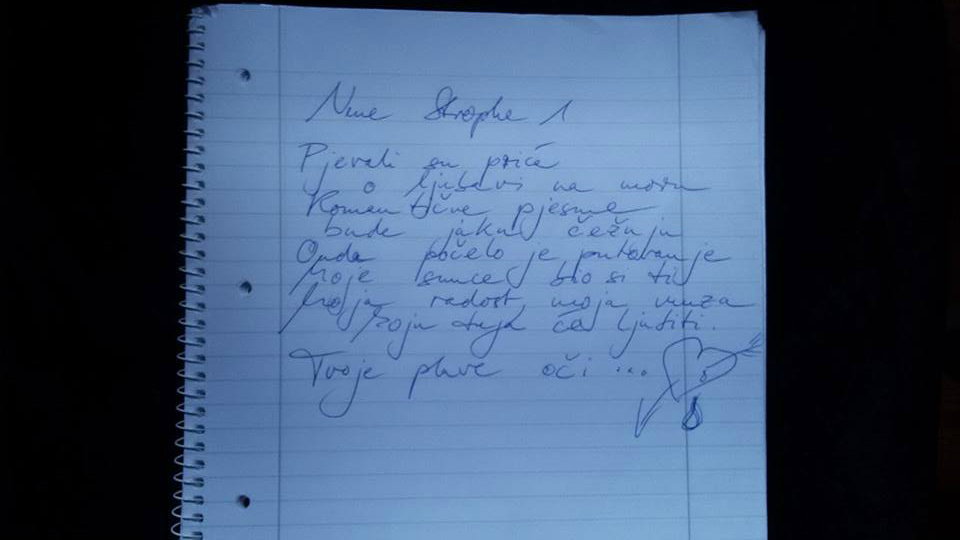 Nue Strophe 1
Pjevali su priče
o ljubavi na moru
Romantične pjesme
bude jaku čežnju
Onda počelo je putovanje
Moje sunce bio si ti
Moja radost, moja muza
koju tuga će ljubiti.
Tvoje plave oči ...